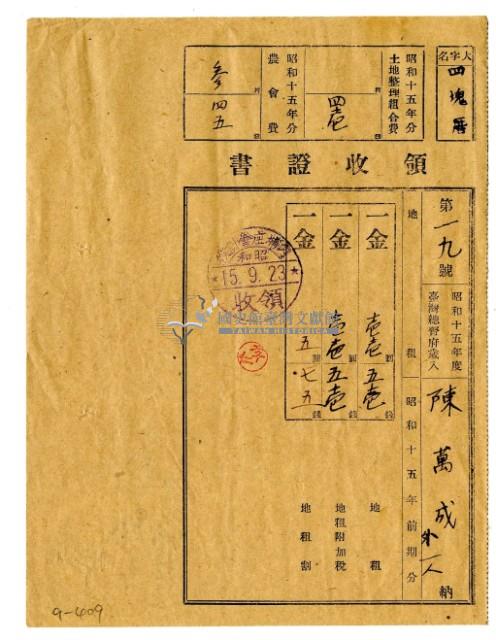 大字名
四塊厝
昭和十五年分
土地整理組合費
四壱
昭和十五年分
農會費
参
四五
領收證書
第一九號
昭和十五年度
臺灣總督府歲入
陳萬成外一人
納
地租
昭和十五年前期分
一金
壱壱
圓
五壱
錢
地租
一金
壱壱
圓
五壱
錢
地租附加稅
一金
五
圓
七五
錢
地租割
昭和
15.9.23
領收
國史館臺灣文獻館
TAIWAN HISTORICA
9-409